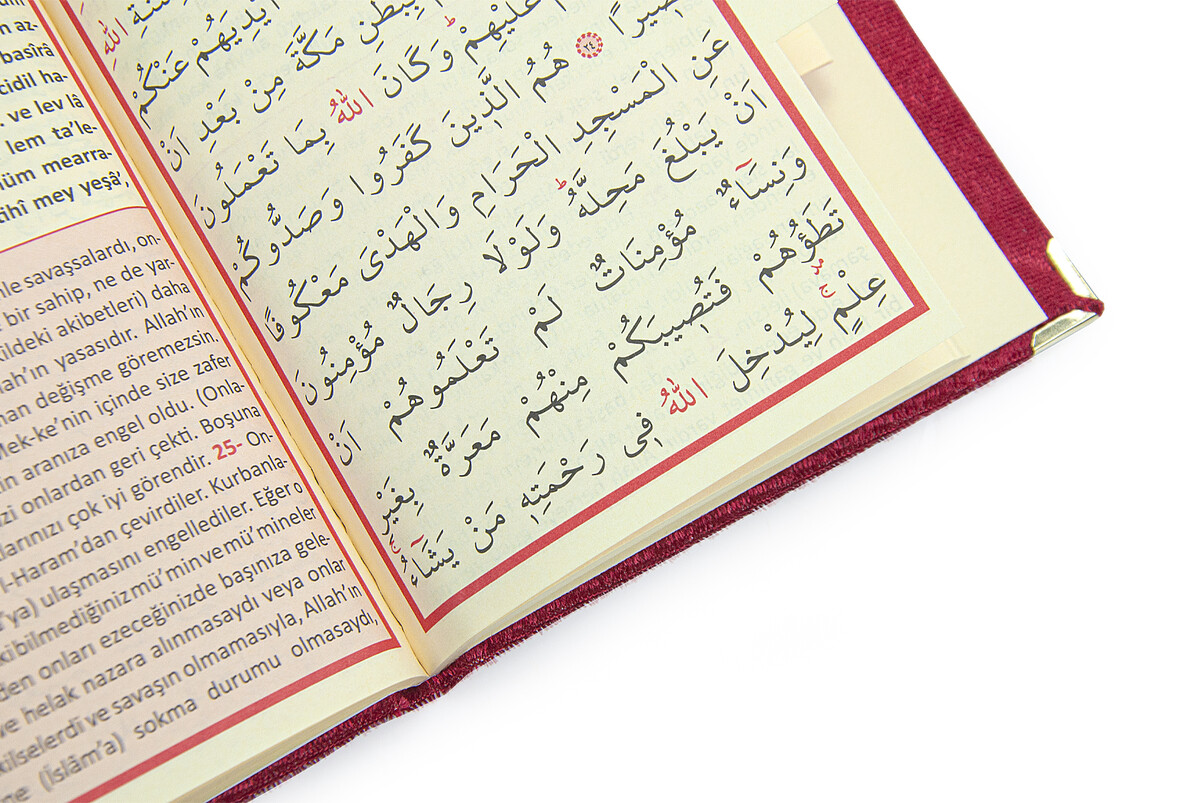 az-
basîrâ
ha-
ve lev lâ
lem ta'le-
mearra-
mey yeşâ',
savaşsalardı, on-
bir sahip, ne de yar-
akibetleri) daha
yasasıdır. Allah'ın
değişme göremezsin.
Mek-ke'nin içinde size zafer
aranıza engel oldu. (Onla-
onlardan geri çekti. Boşuna
çok iyi görendir. 25- On-
Haram'dan çevirdiler. Kurbanla-
ulaşmasını engellediler. Eğer o
bilmediğiniz mü'min ve mü'mineler
onları ezeceğinizde başınıza gele-
helak nazara alınmasaydı veya onlar
ve savaşın olmamasıyla, Allah'ın
(İslâm'a) sokma durumu olmasaydı,
اللهِ
اَيْدِيَهُمْ عَنْكُمْ
بِبَطْنِ مَكَّةَ مِنْ بَعْدِ اَنْ
عَلَيْهِمْ وَكَانَ اللهُ بِمَا تَعْمَلُونَ
بَصِيرًا ٢٤ هُمُ الَّذِينَ كَفَرُوا وَصَدُّوكُمْ
عَنِ الْمَسْجِدِ الْحَرَامِ وَالْهَدْىَ مَعْكُوفًا
اَنْ يَبْلُغَ مَحِلَّهُ وَلَوْلَا رِجَالٌ مُؤْمِنُونَ
وَنِسَٓاءٌ مُؤْمِنَاتٌ لَمْ تَعْلَمُوهُمْ اَنْ
تَطَؤُهُمْ فَتُصِيبَكُمْ مِنْهُمْ مَعَرَّةٌ بِغَيْرِ
عِلْمٍ لِيُدْخِلَ اللهُ فِى رَحْمَتِهِ مَنْ يَشَٓاءُ